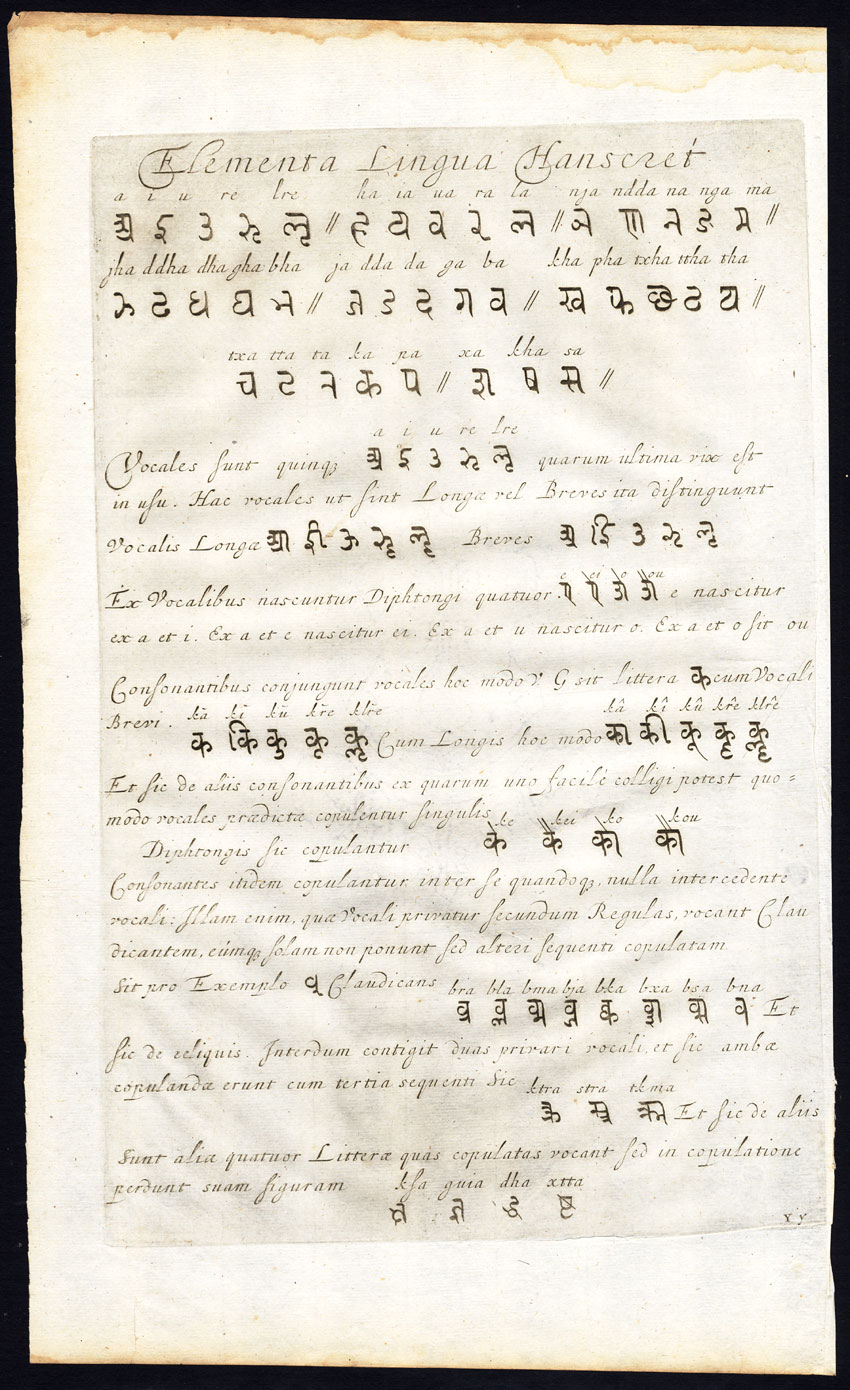 Elementa Lingua Hanscret
a i u re lre ha ia ua ra la nja ndda na nga ma
अ इ उ ऋ ऌ // ह य व र ल // ञ ण न ङ म //
jha ddha dha gha bha ja dda da ga ba kha pha txha ttha tha
झ ढ ध घ भ // ज ड द ग व // ख फ छ ठ थ //
txa tta ta ka pa xa kha sa
च ट त क प // श ष स //
a i u re lre
Vocales sunt quinq; अ इ उ ऋ ऌ quarum ultima vix est
in usu. Hac vocales ut sint Longæ vel Breves ita distinguunt
Vocalis Longæ आ ई ऊ ॠ ॡ Breves अ इ उ ऋ ऌ
e ei o ou
Ex Vocalibus nascuntur Diphtongi quatuor. ए ऐ ओ औ e nascitur
ex a et i. Ex a et e nascitur ei. Ex a et u nascitur o. Ex a et o sit ou
Consonantibus conjungunt vocales hoc modo V. G sit littera क cum Vocali
Brevi. kă kĭ kŭ krĕ klrĕ kâ kî kû krê klrê
क कि कु कृ कॢ Cum Longis hoc modo का की कू कॄ कॣ
Et sic de aliis consonantibus ex quarum uno facilè colligi potest quo=
modo vocales prædictæ copulentur singulis
ke kei ko kou
Diphtongis sic copulantur के कै को कौ
Consonantes itidem copulantur inter se quandoq;, nulla intercedente
vocali: Illam enim, quæ Vocali privatur secundum Regulas, vocant Clau
dicantem, eúmq; solam non ponunt sed alteri sequenti copulatam
Sit pro Exemplo व् Claudicans bra bla bma bja bka bxa bsa bna
व्र व्ल व्म व्ज व्क व्श व्स व्न Et
sic de reliquis. Interdum contigit duas privari vocali, et sic ambæ
copulandæ erunt cum tertia sequenti Sic ktra stra tkma
क्त्र स्त्र त्क्म Et sic de aliis
Sunt aliæ quatuor Litteræ quas copulatas vocant sed in copulatione
perdunt suam figuram ksa guia dha xtta
क्ष ज्ञ द्ध ष्ट